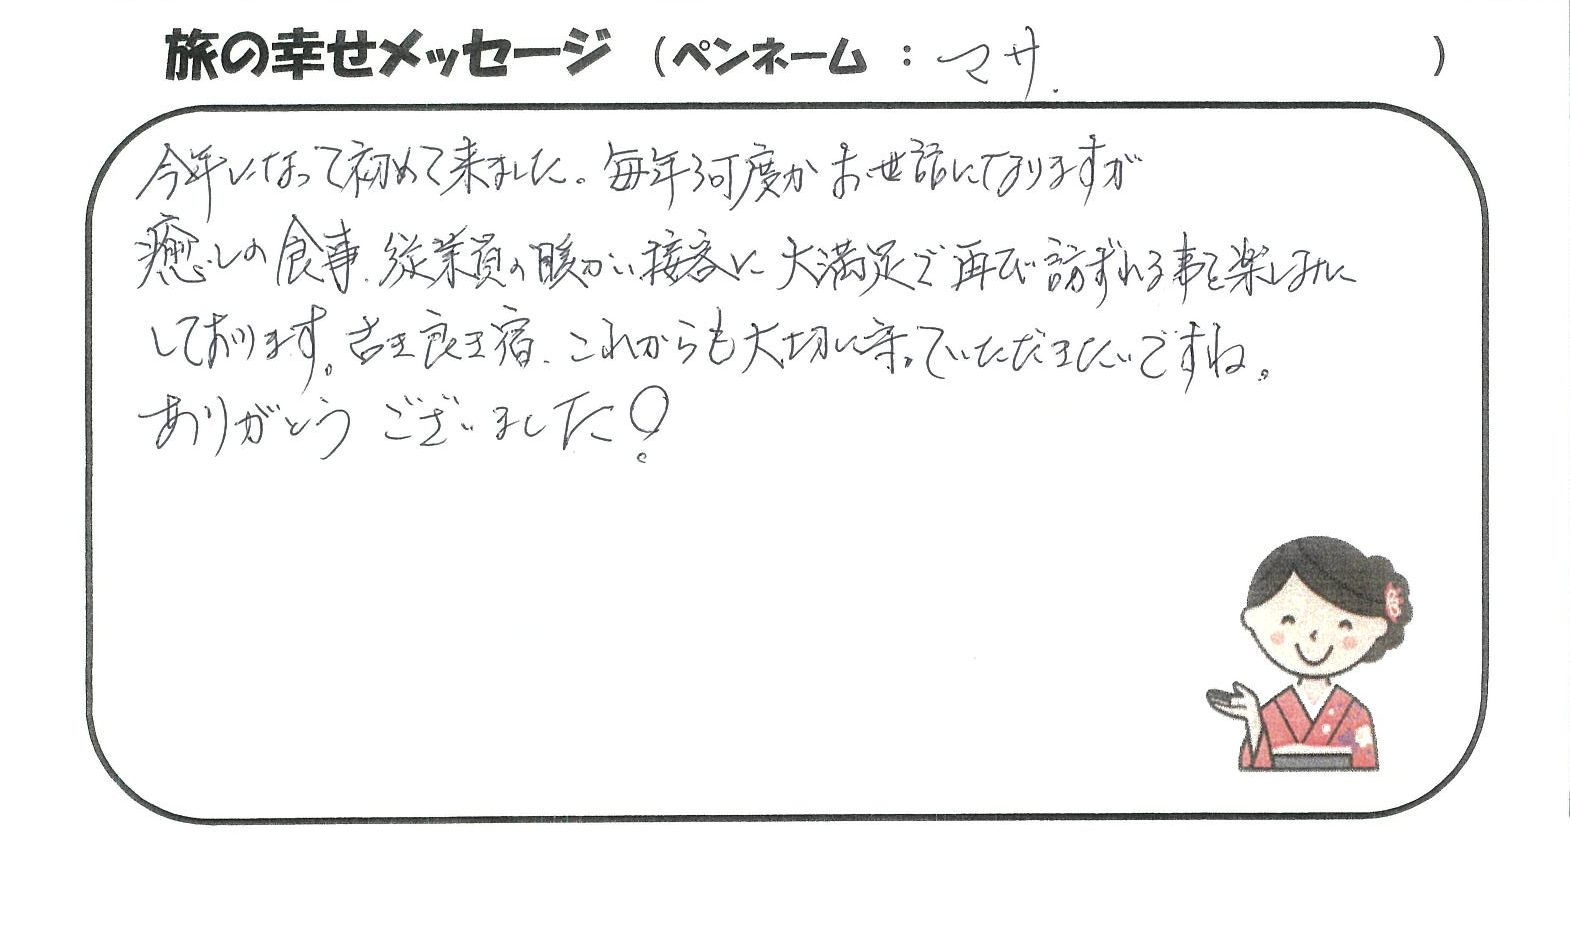 旅の幸せメッセージ (ペンネーム : マサ. )
今年になって初めて来ました。毎年何度かお世話になりますが
癒しの食事、従業員の暖かい接客に大満足で再び訪ずれる事を楽しみに
しております。古き良き宿、これからも大切に守っていただきたいですね。
ありがとうございました!